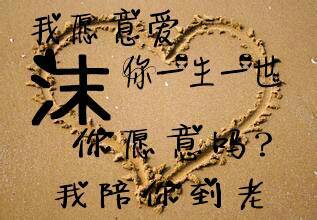 我愿意爱
沫 你一生一世
你愿意吗？
我陪你到老